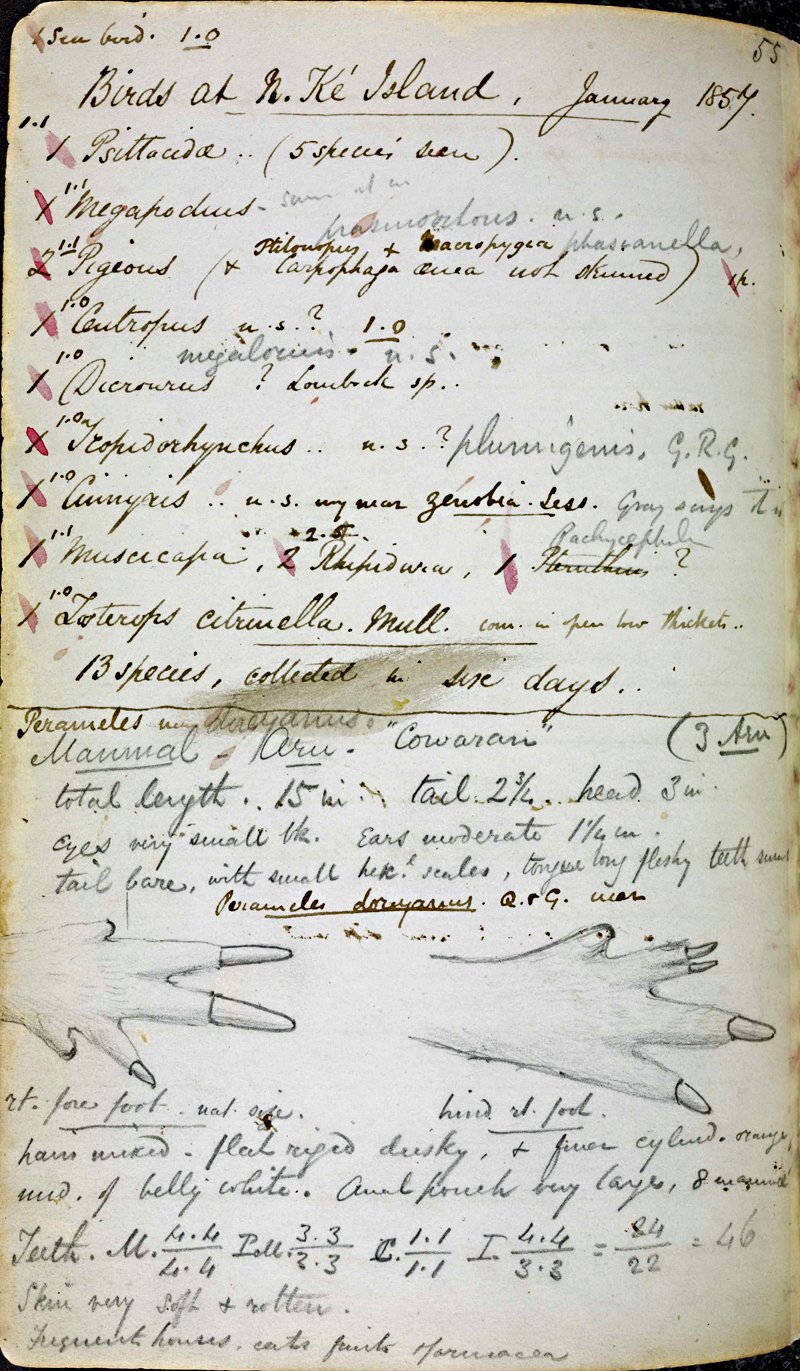 1 Sea bird. 1.0
55
Birds at N. Ké Island, January 1857.
1.1
1 Psittacidæ .. (5 species seen).
1.1
1 Megapodius - same as in
prasmorelous. n.s.
1.1
2 Pigeons (& Ptilonopus + macropygia phasianella,
Carpophaga ænea not skinned) sp.
1.0
1 Centropus n.s.? 1.0
megalorus. n.s.
1.0
1 Dicrourus ? Lombock sp..
1.0
1 Tropidorhynchus .. n.s.? plumigenis, G.R.G.
1.0
1 Cinnyris .. n.s. my near zenobia. Less. Gray says it is
1.1 2.
1 Muscicapa, 2 Rhipidura, 1 Pteruthius ?
Pachycephala
1.0
1 Zosterops citrinella. Mull. com. in open low thickets..
13 species, collected in six days..
Perameles doreyanus.
Mammal Aru. "Cowaran" (3 Aru)
total length.. 15 in. tail. 2¾.. head 3 in.
Eyes very small bk. Ears moderate 1¼ in.
tail bare, with small hex.l scales, tongue long fleshy teeth small
Perameles doreyanus. Q. & G. near
rt. fore foot. nat. size. hind rt. foot.
hair mixed - flat rigid dusky, & finer cylind. orange,
mid. of belly white. Anal pouch very large, 8 mammæ
Teeth. M. 4.4/4.4 P.M. 3.3/3.3 C. 1.1/1.1 I. 4.4/3.3 = 24/22 = 46
Skin very soft & rotten.
Frequent houses. eats fruits & farinacea